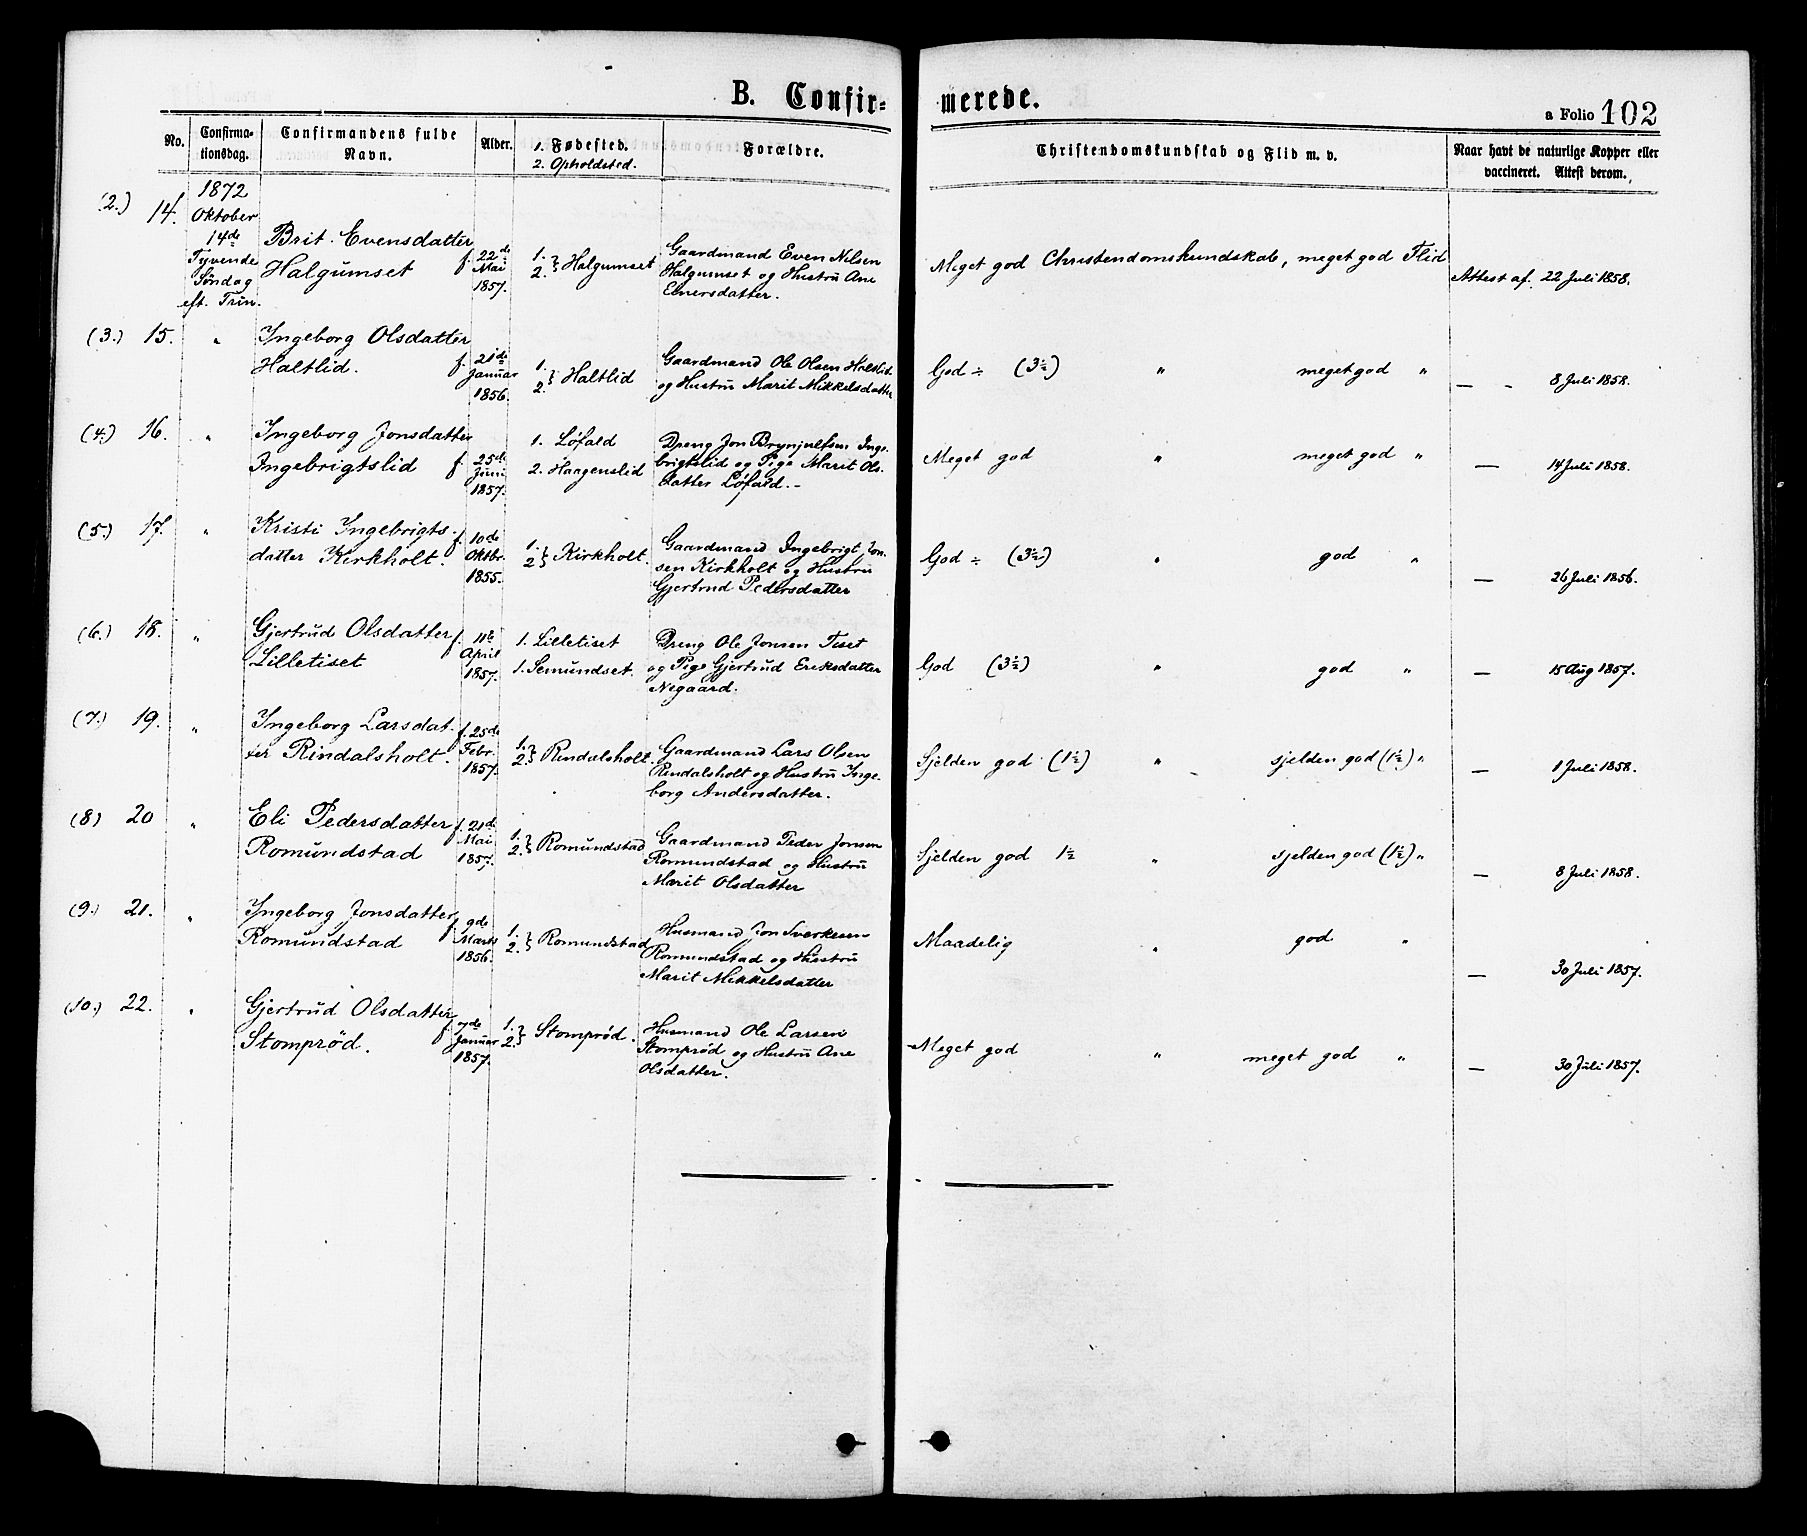 B. Confir-
merede.
a Folio 102
No.
Confirma-
tionsdag.
Confirmandens fulde
Navn.
Alder.
1. Fødested.
2. Opholdsted.
Forældre.
Christendomskundskab og Flid m. v.
Naar havt de naturlige Kopper eller
vaccineret. Attest derom.
(2.) 14.
1872
Oktober
14de
Tyvende
Søndag
eft. Trin.
Brit Evensdatter
Halgumset
f. 22de
Mai
1857.
1. } Halgumset
2.
Gaardmand Even Nilsen
Halgumset og Hustru Ane
Einersdatter.
Meget god Christendomskundskab, meget god Flid
Attest af 22 Juli 1858.
(3.) 15. "
Ingeborg Olsdatter
Haltlid.
f. 21de
Januar
1856.
1. } Haltlid
2.
Gaardmand Ole Olsen Haltlid
og Hustru Marit Mikkelsdatter
God ÷ (3½) " meget god "
— - 8 Juli 1858.
(4.) 16. "
Ingeborg Jonsdatter
Ingebrigtslid
f. 25de
Juni
1857.
1. Løfald
2. Haagenslid
Dreng Jon Brynjulfsen Inge-
brigtslid og Pige Marit Ols-
datter Løfald. -
Meget god " meget god "
— 14 Juli 1858.
(5.) 17. "
Kristi Ingebrigts-
datter Kirkholt.
f. 10de
Oktbr.
1855.
1. } Kirkholt.
2
Gaardmand Ingebrigt Jon-
sen Kirkholt og Hustru
Gjertrud Pedersdatter
God ÷ (3½) " god "
— 26 Juli 1856.
(6.) 18. "
Gjertrud Olsdatter
Lilletiset
f. 11te
April
1857.
1. Lilletiset
1. Semundset.
Dreng Ole Jonsen Tiset
og Pige Gjertrud Eriksdatter
Negaard.
God (3½) " god "
— 15 Aug 1857.
(7.) 19. "
Ingeborg Larsdat-
ter Rindalsholt.
f. 25de
Febr.
1857.
1. } Rindalsholt.
2.
Gaardmand Lars Olsen
Rindalsholt og Hustru Inge-
borg Andersdatter.
Sjelden god (1½) " sjelden god (1½) "
— 1 Juli 1858.
(8) 20 "
Eli Pedersdatter
Romundstad
f. 21de
Mai
1857.
1. } Romundstad
2.
Gaardmand Peder Jonsen
Romundstad og Hustru
Marit Olsdatter
Sjelden god 1½ " sjelden god (1½) "
— 8 Juli 1858.
(9.) 21. "
Ingeborg Jonsdatter
Romundstad
f. 9de
Marts
1856.
1. } Romundstad
2.
Husmand Jon Sverkesen
Romundstad og Hustru
Marit Mikkelsdatter
Maadelig " god "
— 30 Juli 1857.
(10.) 22. "
Gjertrud Olsdatter
Stomprød.
f. 7de
Januar
1857.
1. } Stomprød.
2.
Husmand Ole Larsen
Stomprød og Hustru Ane
Olsdatter.
Meget god " meget god "
— 30 Juli 1857.